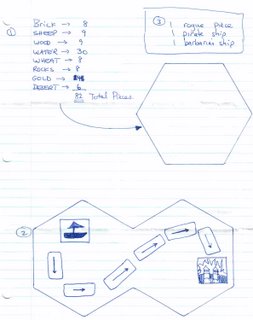 ①
Brick → 8
SHEEP → 9
WOOD → 9
WATER → 30
WHEAT → 8
ROCKS → 8
GOLD →
DESERT → 6
82 Total Pieces
③
1 rogue piece
1 pirate ship
1 barbarian ship
②